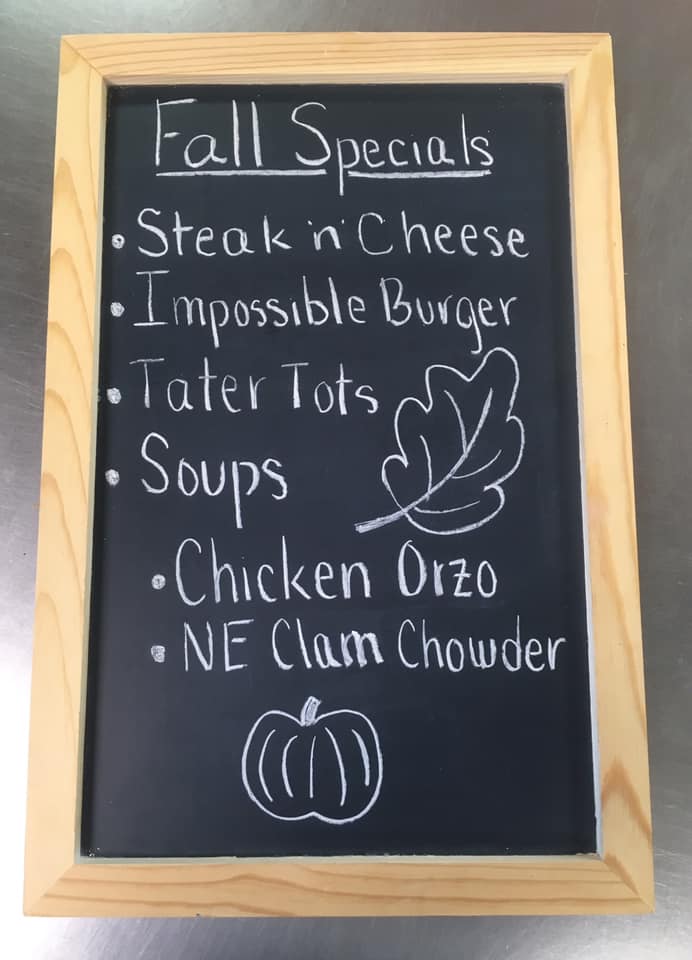 Fall Specials
• Steak 'n' Cheese
• Impossible Burger
• Tater Tots
• Soups
• Chicken Orzo
• NE Clam Chowder